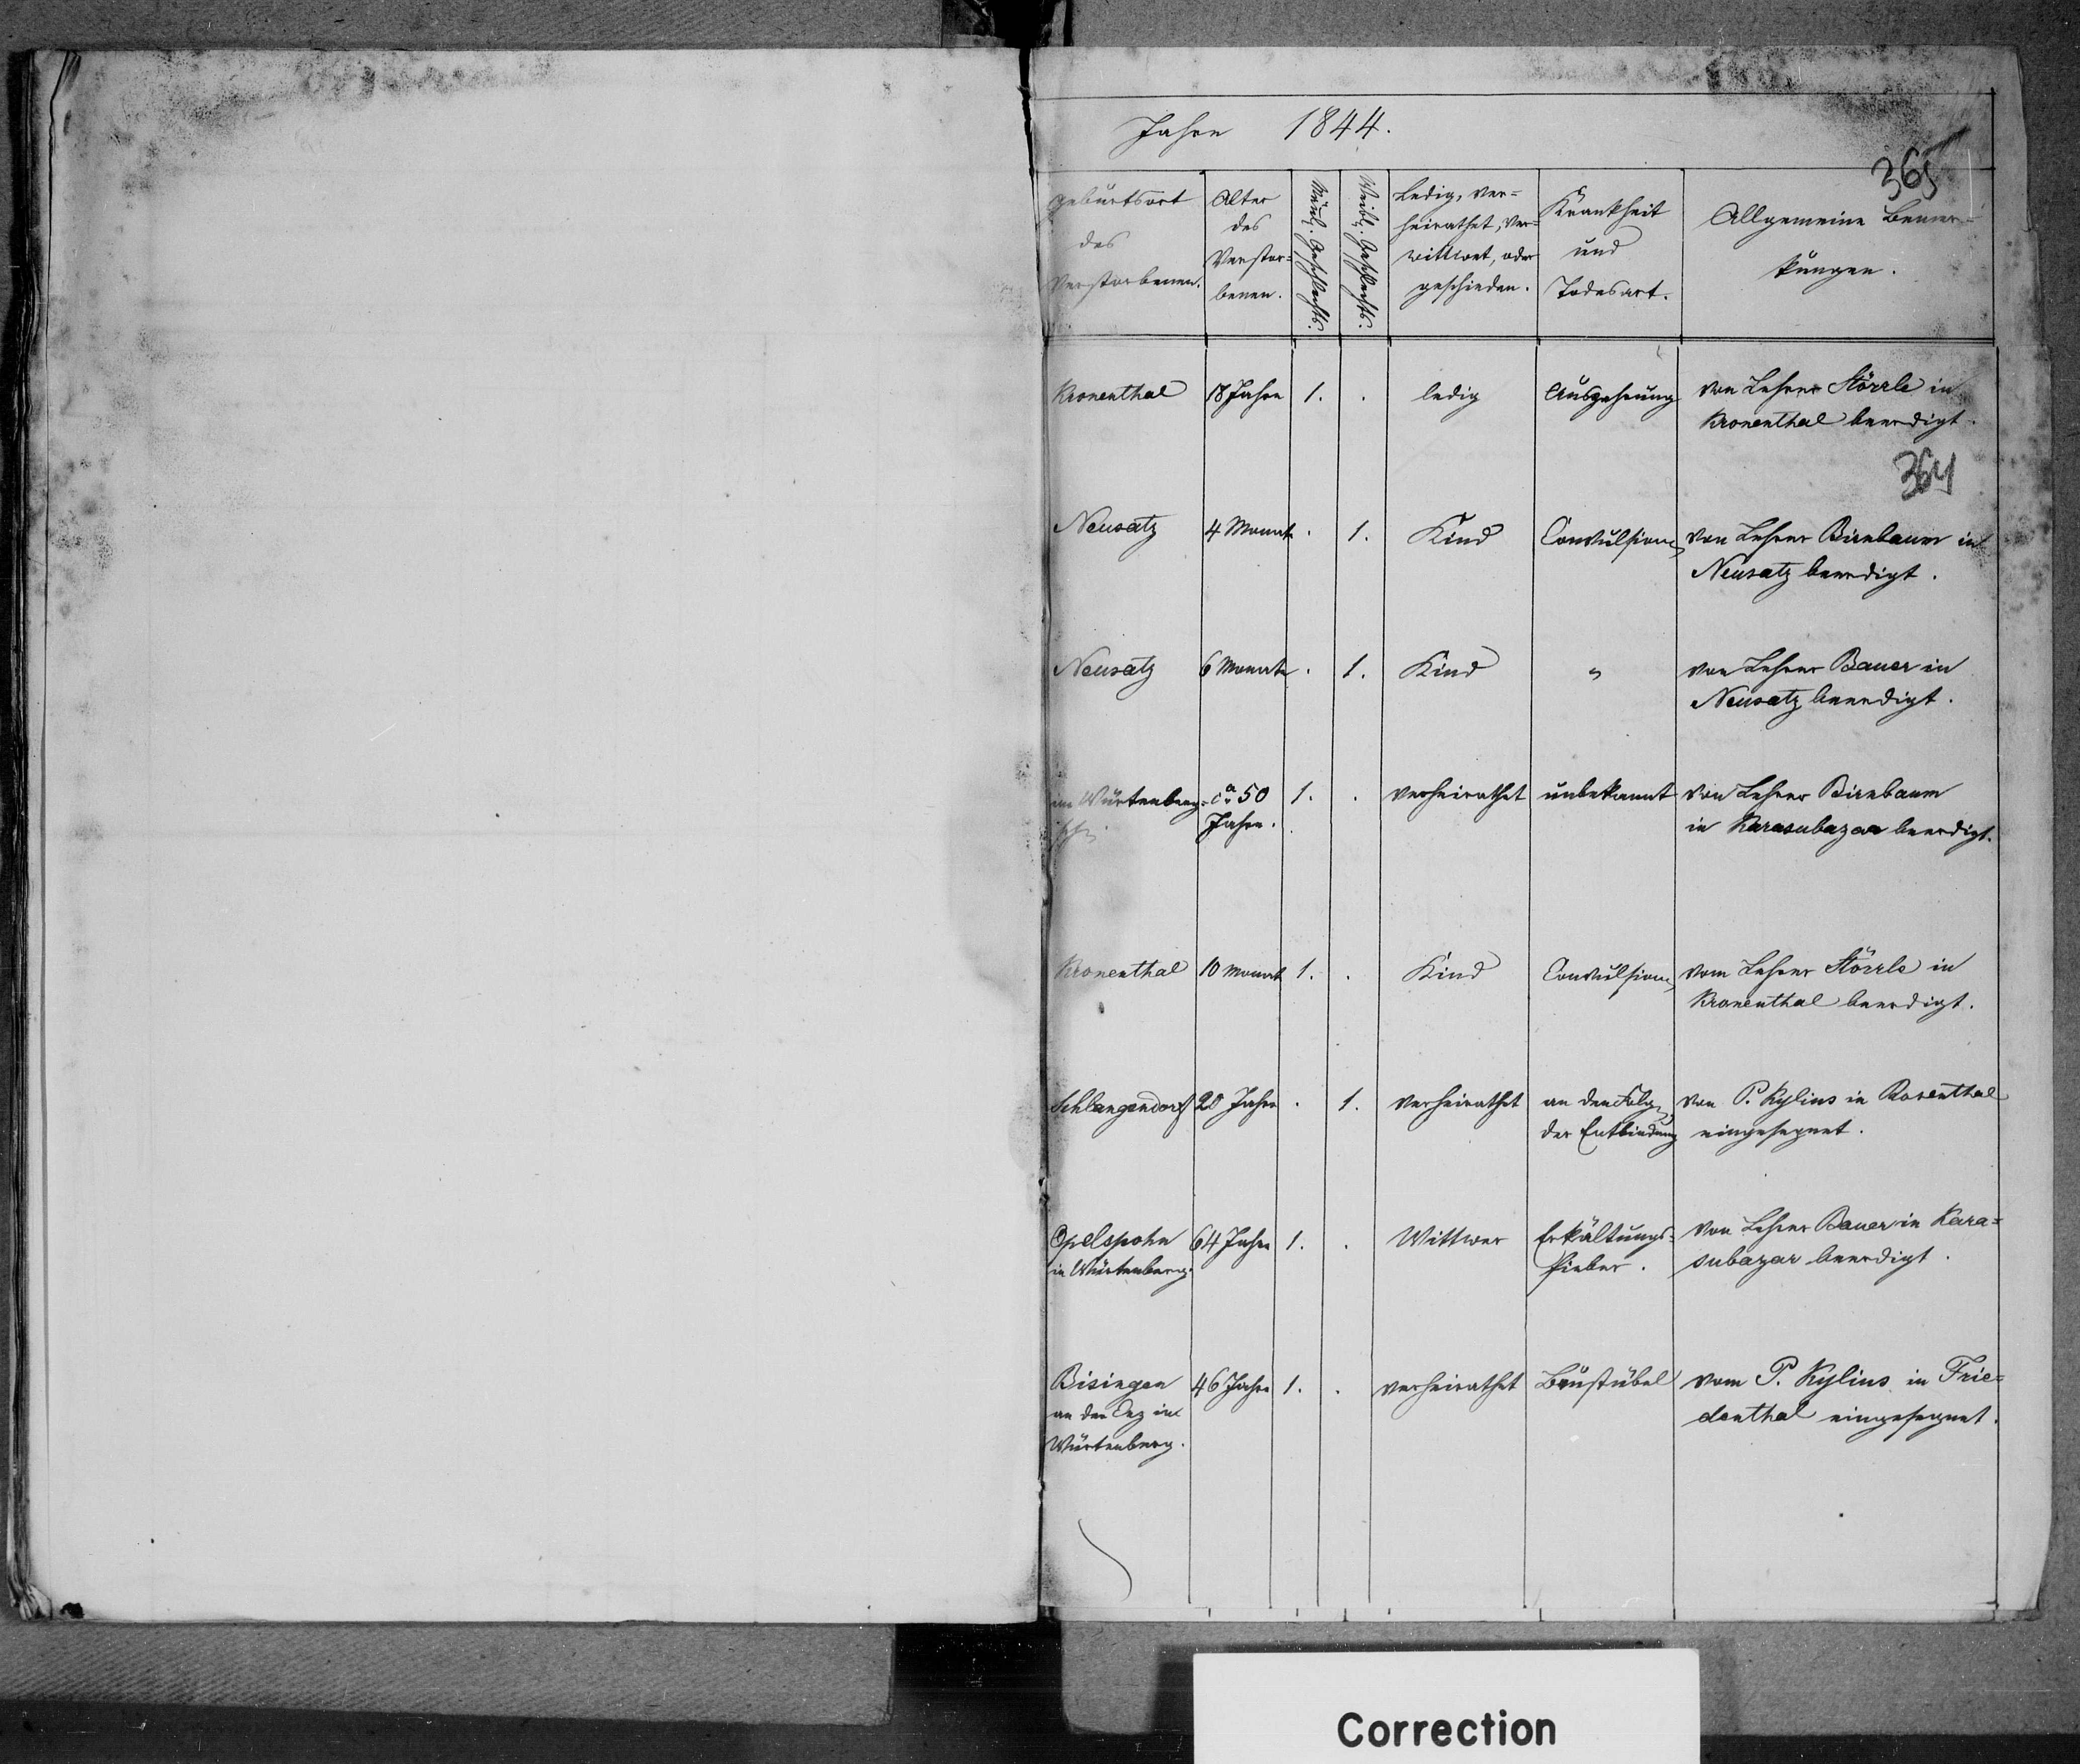 Jahre 1844.
365
Geburtsort des Verstorbenen. Alter des Verstor= benen. Männl. Geschlechts. Weibl. Geschlechts. Ledig, ver= heirathet, ver= wittwet, oder geschieden. Krankheit und Todesart. Allgemeine Bemer= kungen.
Kronenthal 18 Jahre 1. . ledig Auszehrung von Lehrer Störrle in
Kronenthal beerdigt.
364
Neusatz 4 Monate . 1. Kind Convulsionen von Lehrer Birnbaum in
Neusatz beerdigt.
Neusatz 6 Monate . 1. Kind " von Lehrer Bauer in
Neusatz beerdigt.
im Würtenberg= ca 50 1. . verheirathet unbekannt von Lehrer Birnbaum
Jahre. in Karasubazar beerdigt.
Kronenthal 10 Monat 1. . Kind Convulsionen vom Lehrer Störrle in
Kronenthal beerdigt.
Schlangendorf 20 Jahre . 1. verheirathet an den Folgen von P. Kylius in Rosenthal
der Entbindung eingesegnet.
Opelspohn 64 Jahre 1. . Wittwer Erkältungs= von Lehrer Bauer in Kara=
in Würtenberg. fieber. subazar beerdigt.
Bisingen 46 Jahre 1. . verheirathet Brustübel vom P. Kylius in Frie=
an der Enz in denthal eingesegnet.
Würtenberg.
Correction